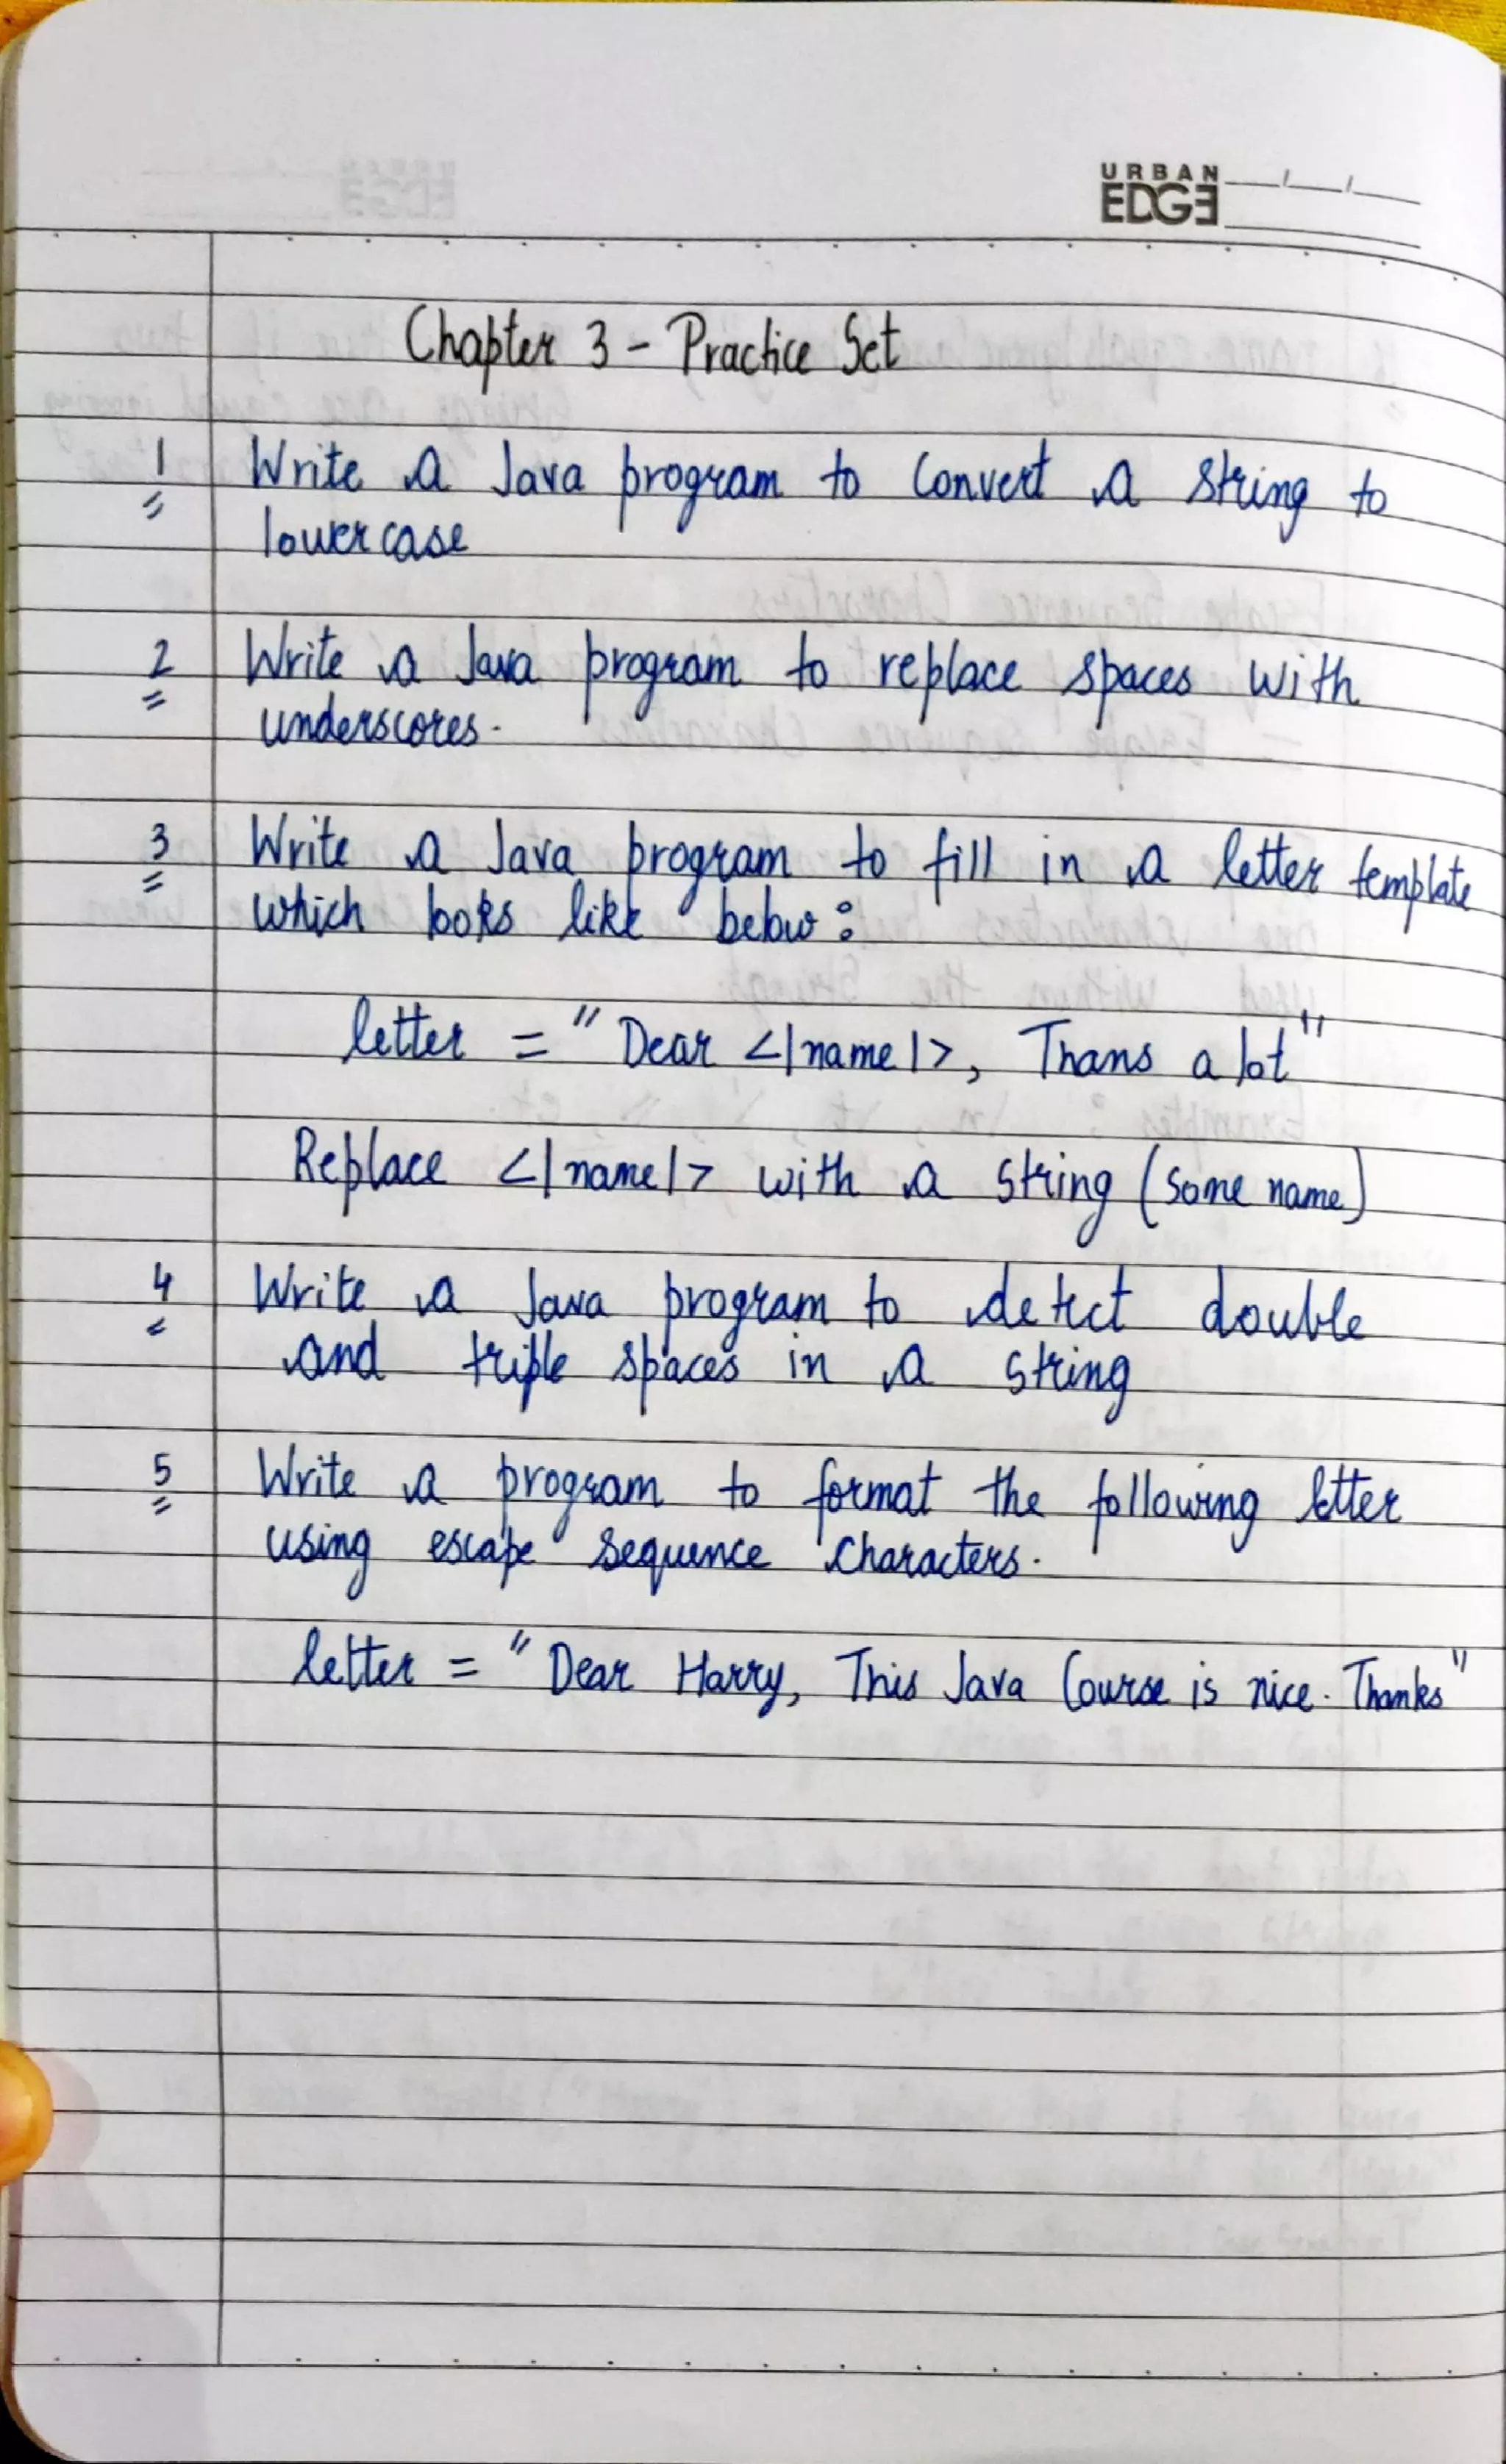 URBAN
EDGE
Chapter 3 - Practice Set
1 Write a Java program to Convert a string to
lowercase
2 Write a Java program to replace spaces with
underscores.
3 Write a Java program to fill in a letter template
which looks like below:
letter = "Dear <|name|>, Thans a lot"
Replace <|name|> with a string (some name)
4 Write a Java program to detect double
and triple spaces in a string
5 Write a program to format the following letter
using escape sequence characters.
letter = "Dear Harry, This Java Course is nice. Thanks"